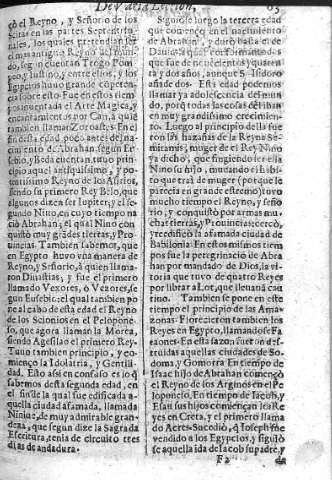 De varia Lection, 63
çó el Reyno, y Señorio de los
Scitas en las partes Septentrio-
nales, los quales pretendian ser
el mas antiguo Reyno del mun-
do, segun cuentan Trogo Pom-
peo, y Iustino, y entre ellos, y los
Egypcios huuo grande compe-
tencia sobre esto. En este tiempo
fue inuentada el Arte Magica, y
encantamientos por Can, á quien
tambien llamaró Zoroastes. En fin
desta edad, poco antes del na-
cimiento de Abrahan, segun Eu-
sebio, y Beda cuentan, tuuo prin-
cipio aquel antiquissimo, y po-
tentissimo Reyno de los Asirios,
siendo su primero Rey Belo, que
algunos dizen ser Iupiter, y el se-
gundo Nino, en cuyo tiempo na-
ció Abrahan; el qual Nino con-
quistó muy grãdes tierras, y Pro-
uincias. Tambien sabemos, que
en Egypto huuo vna manera de
Reyno, y Señorio, à quien llama-
ron Dinastias, y fue el primero
llamado Vexores, ò Vezores, se-
gun Eusebio: el qual tambien po
ne al cabo de esta edad el Reyno
de los Scionios en el Peloponne-
so, que agora llaman la Morea,
siendo Agesilao el primero Rey.
Tuuo tambien principio, y co-
mienço la Idolatria, y Gentili-
dad. Esto assi en confuso es lo q̃
sabemos desta segunda edad, en
el fin de la qual fue edificada a-
quella ciudad afamada, llamada
Niniue, de muy admirable gran-
deza, que segun dize la Sagrada
Escritura, tenia de circuito tres
dias de andadura.
Siguiòse luego la tercera edad
que començò en el nacimiento
de Abrahan, y durò hasta el de
Dauid: la qual conformemente
que fue de nouecientos y quaren
ta y dos años, aunque S. Isidoro
añade dos. Esta edad podemos
llamar ya adolescencia del mun-
do, porq̃ todas las cosas dél iban
en muy grandissimo crecimien-
to. Luego al principio della fue
ron las hazañas de la Reyna Se-
miramis, muger de el Rey Nino
ya dicho, que fingiendo ser ella
Nino su hijo, mudando el habi-
to que traía de muger (porque le
parecia en grande estremo) tuuo
mucho tiempo el Reyno, y seño
rio, y conquistò por armas mu-
chas tierras, y Prouincias; cercò,
y reedificò la afamada ciudad de
Babilonia. En estos mismos tiem
pos fue la peregrinacio de Abra
han por mandado de Dios, la vi-
toria que tuvo de quatro Reyes
por librar a Lot, que lleuauã cau
tiuo. Tambien se pone en este
tiempo el principio de las Ama-
zonas. Florecieron tambien los
Reyes en Egypto, llamandose Fa
raones. En esta sazon fueron des-
truidas aquellas ciudades de So-
doma, y Gomorra. En tiempo de
Isaac hijo de Abrahan començó
el Reyno de los Arginos en el Pe
loponeso. En tiempo de Iacob, y
Esau sus hijos comiençan los Re
yes en Creta, y el primero llama
do Acres. Sucedió, q̃ Ioseph fue
vendido a los Egypcios, y siguiò
se aquella ida de Iacob su padre, y
F 2 de